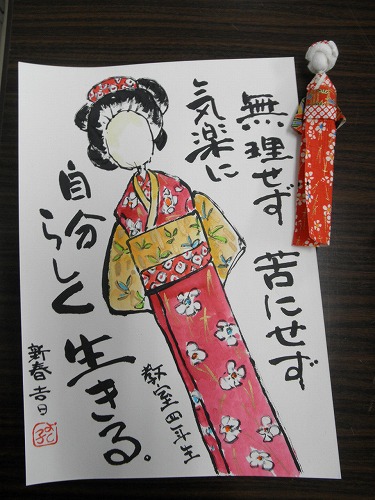 無理せず 苦にせず
気楽に
自分
らしく 生きる。
教室四年生
新春吉日